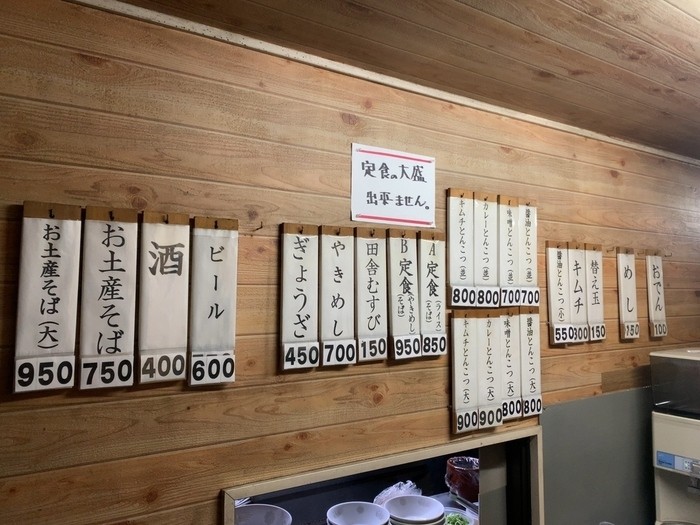 定食の大盛
出来ません。
おでん
100
めし
250
替え玉
150
キムチ
300
醤油とんこつ(小)
550
醤油とんこつ(並)
700
味噌とんこつ(並)
700
カレーとんこつ(並)
800
キムチとんこつ(並)
800
醤油とんこつ(大)
800
味噌とんこつ(大)
800
カレーとんこつ(大)
900
キムチとんこつ(大)
900
A定食(ライス)(そば)
850
B定食(やきめし)(そば)
950
田舎むすび
150
やきめし
700
ぎょうざ
450
ビール
600
酒
400
お土産そば
750
お土産そば(大)
950